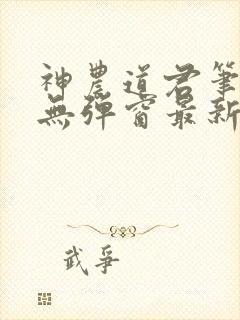 神農道君筆
無彈窗最新
武爭